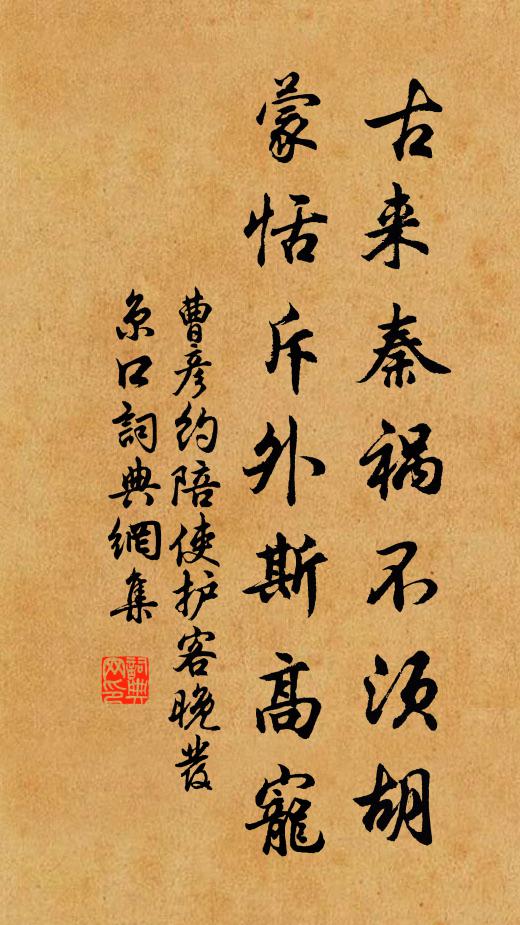 古来秦祸不须胡
蒙恬斥外斯高寵
曹彦约陪使护客晚發
京口詞典網集
詞典网印